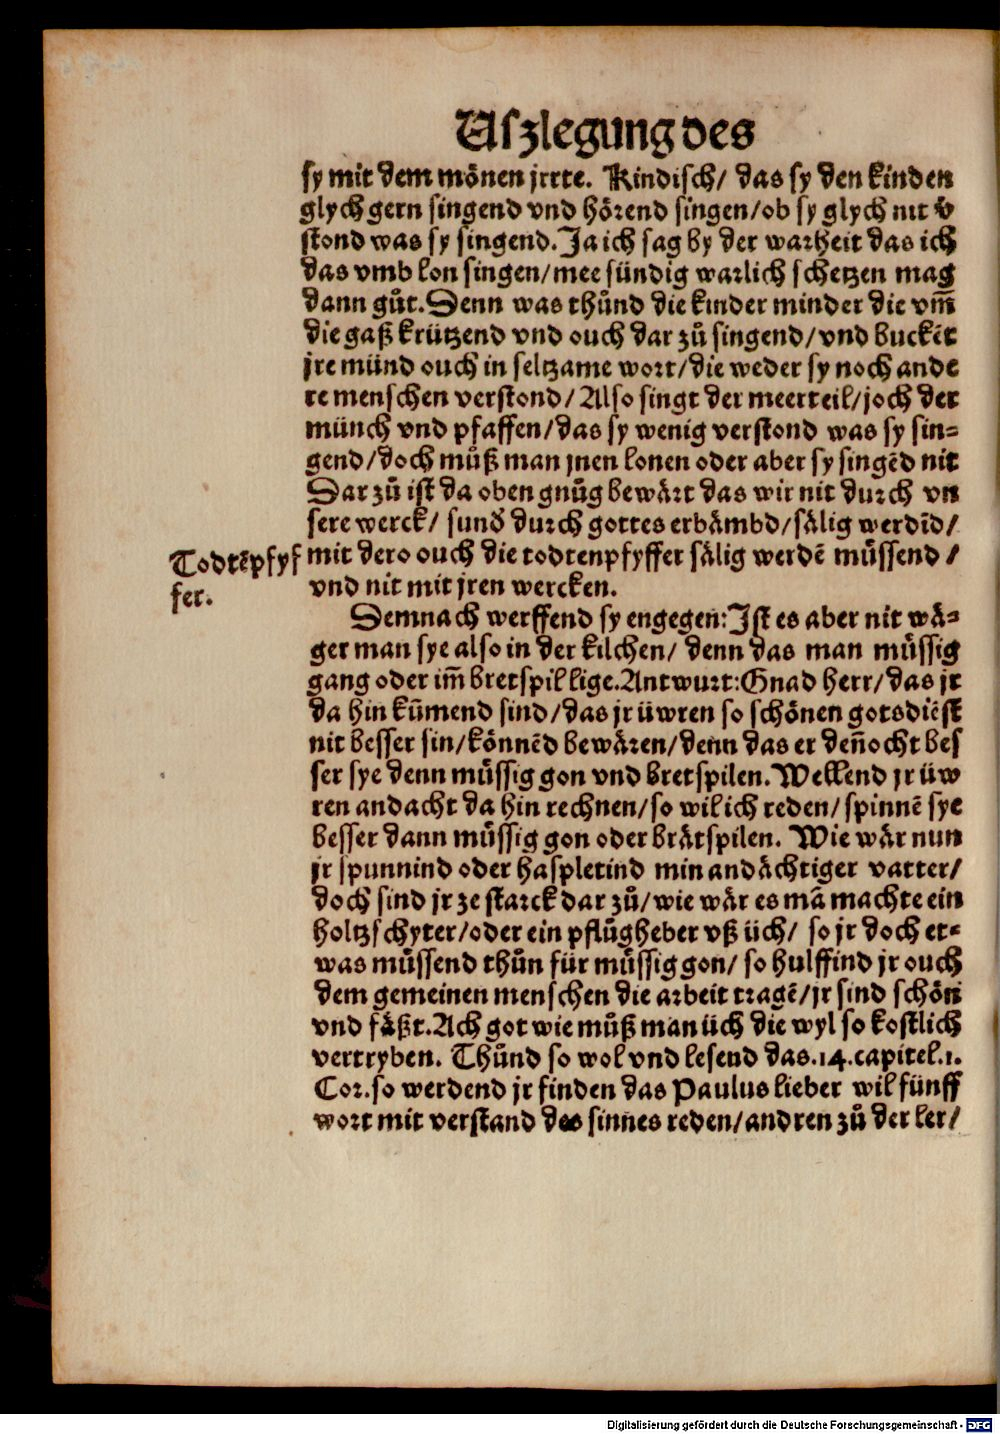 Uſzlegung des
ſy mit dem mönen jrrte. Kindiſch/ das ſy den kinden
glych gern ſingend vnd hörend ſingen/ob ſy glych nit v̄
ſtond was ſy ſingend. Ja ich ſag by der warheit das ich
das vmb lon ſingen/mee ſündig warlich ſchetzen mag
dann gůt. Denn was thůnd die kinder minder die vm̄
die gaß krützend vnd ouch dar zů ſingend/vnd buckēt
jre münd ouch in ſeltzame wort/die weder ſy noch ande
re menſchen verſtond/ Alſo ſingt der meerteil/joch der
münch vnd pfaffen/das ſy wenig verſtond was ſy ſin-
gend/doch můß man jnen lonen oder aber ſy ſingēd nit
Dar zů iſt da oben gnůg bewärt das wir nit durch vn
ſere werck/ ſund̄ durch gottes erbämbd/ſälig werdīd/
Todtēpfyf
fer.
mit dero ouch die todtenpfyffer ſälig werdē müſſend/
vnd nit mit jren wercken.
Demnach werffend ſy engegen: Iſt es aber nit wä-
ger man ſye alſo in der kilchen/ denn das man müſſig
gang oder im̄ bretſpil lige. Antwurt: Gnad herr/das jr
da hin kūmend ſind/das jr üwren ſo ſchönen gotsdiēſt
nit beſſer ſin/könnēd bewären/denn das er den̄ocht beſ
ſer ſye denn müſſig gon vnd bretſpilen. Wellend jr üw
ren andacht da hin rechnen/ſo wil ich reden/ſpinnē ſye
beſſer dann müſſig gon oder brätſpilen. Wie wär nun
jr ſpunnind oder haſpletind min andächtiger vatter/
doch ſind jr ze ſtarck dar zů/wie wär es mā machte ein
holtzſchyter/oder ein pflůgheber vß üch/ ſo jr doch et-
was müſſend thůn für müſſig gon/ ſo hulffind jr ouch
dem gemeinen menſchen die arbeit tragē/jr ſind ſchön
vnd fäßt. Ach got wie můß man üch die wyl ſo koſtlich
vertryben. Thůnd ſo wol vnd leſend das .14. capitel .1.
Cor. ſo werdend jr finden das Paulus lieber wil fünff
wort mit verſtand des ſinnes reden/andren zů der ler/
Digitalisierung gefördert durch die Deutsche Forschungsgemeinschaft - DFG